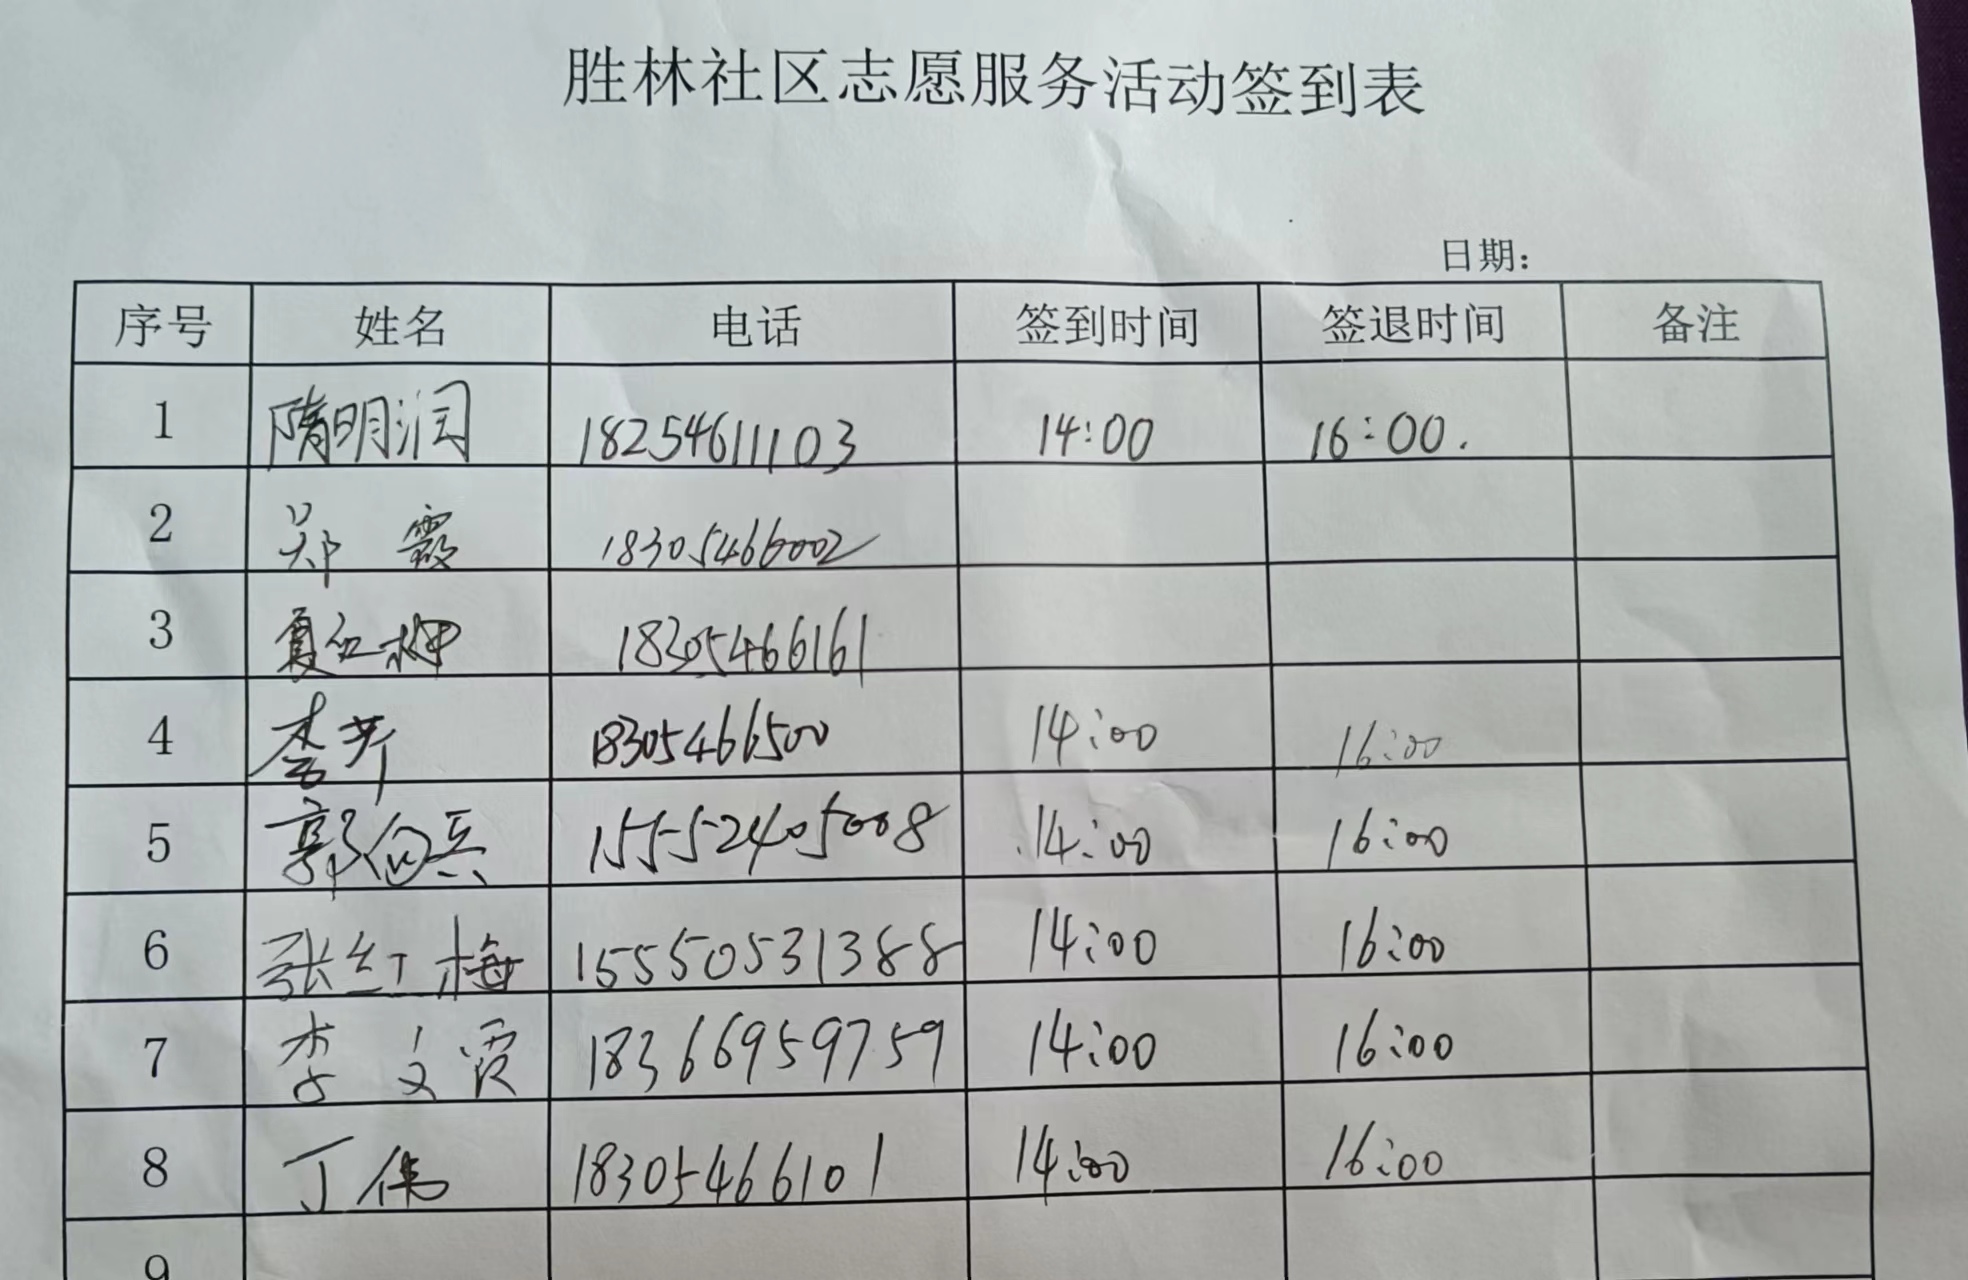 胜林社区志愿服务活动签到表
日期：
序号 姓名 电话 签到时间 签退时间 备注
1 隋明润 18254611103 14:00 16:00.
2 郑霞 18305466002
3 夏红柳 18305466161
4 李芹 18305466500 14:00 16:00
5 郭伯兵 15552405008 14:00 16:00
6 张红梅 15550531388 14:00 16:00
7 李文霞 18366959759 14:00 16:00
8 丁伟 18305466101 14:00 16:00
9